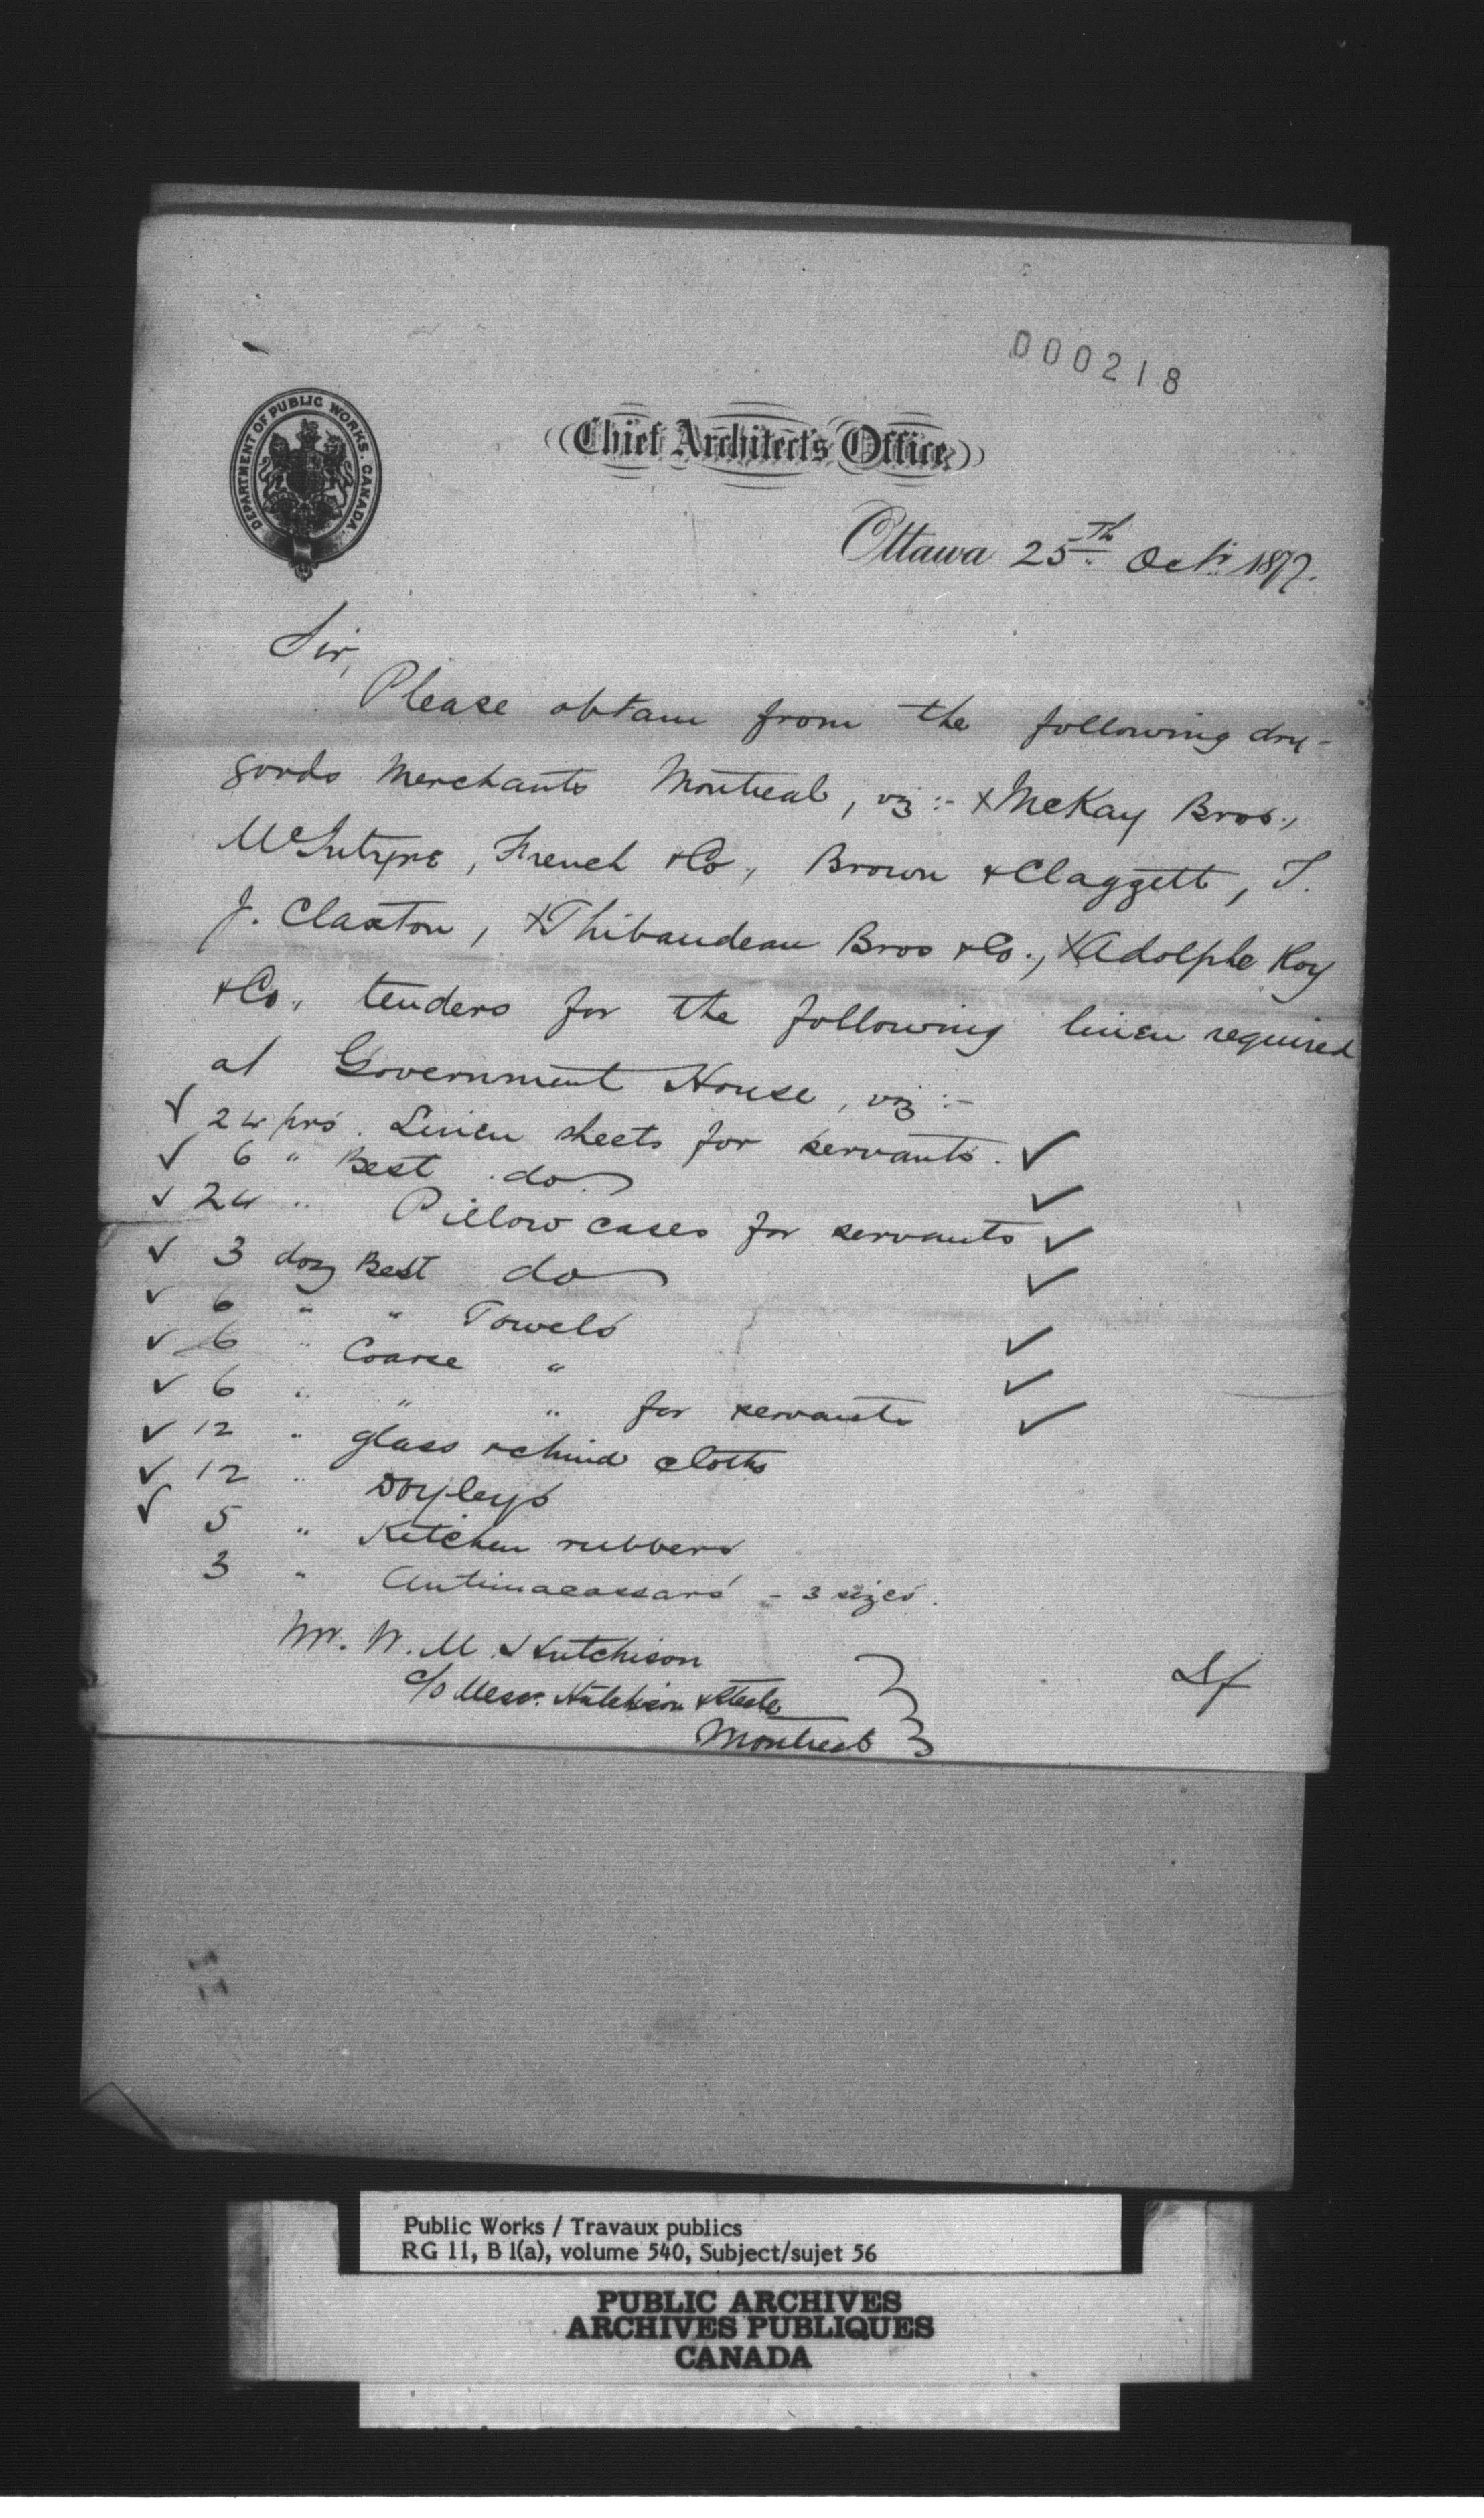 000218
DEPARTMENT OF PUBLIC WORKS. CANADA.
Chief Architect's Office
Ottawa 25th Octr. 1877.
Sir,
Please obtain from the following dry-
goods Merchants Montreal, viz:- x McKay Bros.,
McIntyre, French & Co., Brown & Claggett, T.
J. Claxton, x Thibaudeau Bros & Co., x Adolphe Roy
& Co., tenders for the following linen required
at Government House, viz:-
✓ 24 prs. Linen sheets for servants. ✓
✓ 6 " Best do. ✓
✓ 24 " Pillow cases for servants ✓
✓ 3 doz Best do ✓
✓ 6 " " Towels ✓
✓ 6 " Coarse " ✓
✓ 6 " " " for servants ✓
✓ 12 " glass & china cloths
✓ 12 " Doyleys
✓ 5 " Kitchen rubbers
3 " Antimacassars - 3 sizes.
Mr. W. M. Hutchison
c/o Messr. Hutchison & Steele
Montreal
Public Works / Travaux publics
RG 11, B 1(a), volume 540, Subject/sujet 56
PUBLIC ARCHIVES
ARCHIVES PUBLIQUES
CANADA